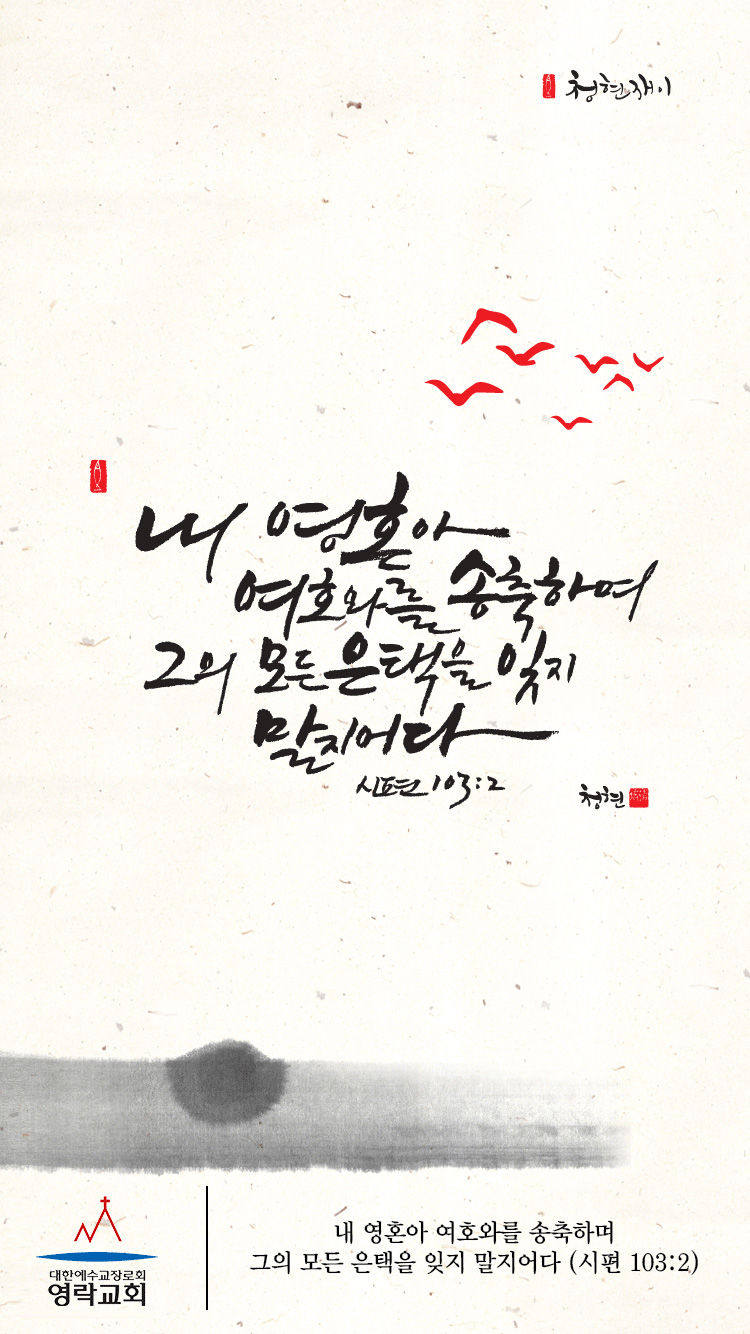 청현재이
내 영혼아
여호와를 송축하며
그의 모든 은택을 잊지
말지어다
시편 103:2
청현
대한예수교장로회
영락교회
내 영혼아 여호와를 송축하며
그의 모든 은택을 잊지 말지어다 (시편 103:2)